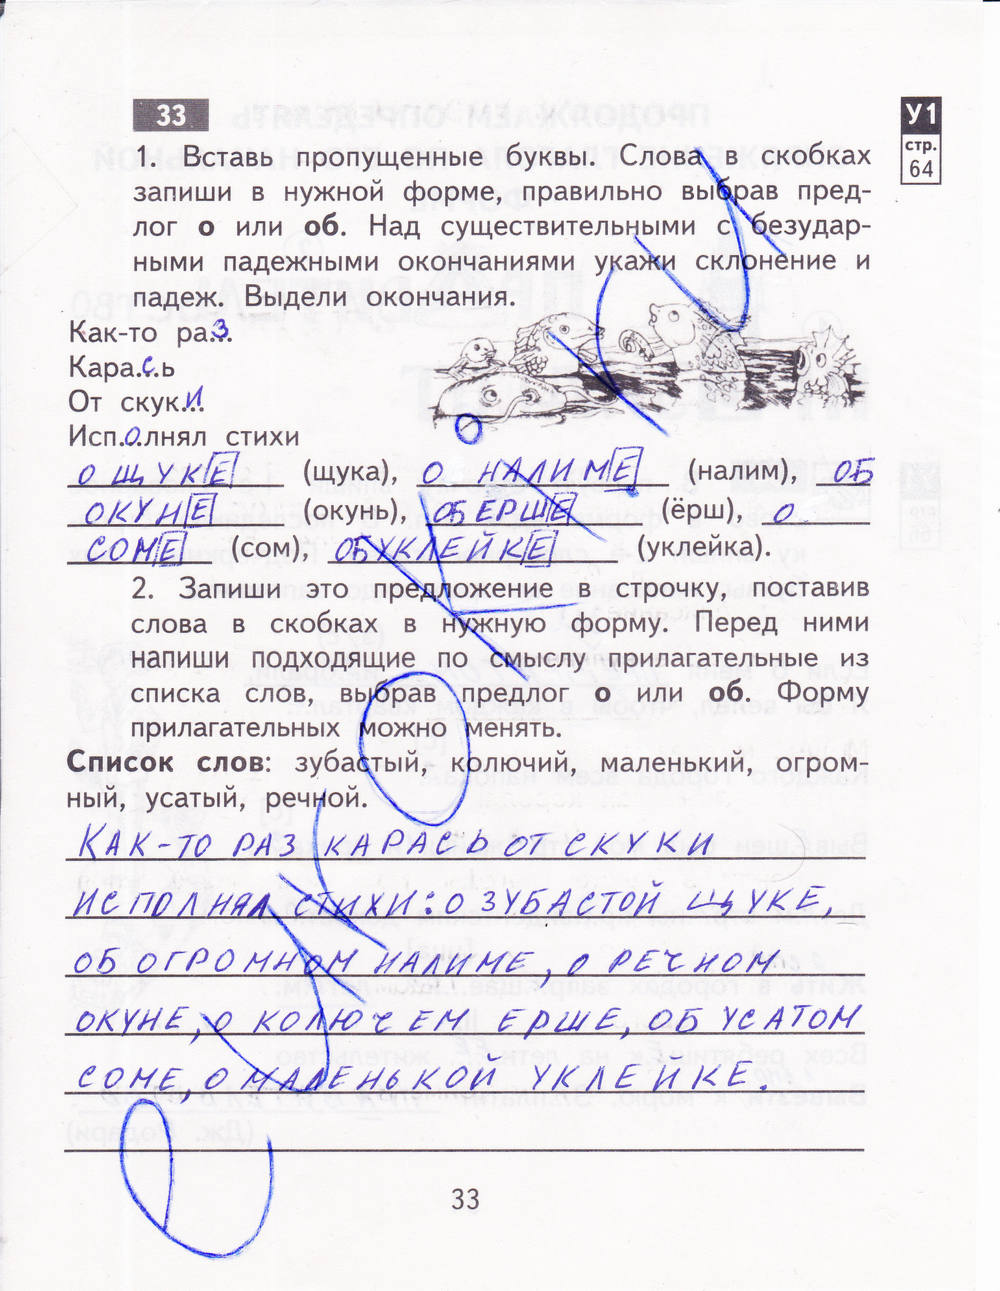 33
У1
стр.
64
1. Вставь пропущенные буквы. Слова в скобках
запиши в нужной форме, правильно выбрав пред-
лог о или об. Над существительными с безудар-
ными падежными окончаниями укажи склонение и
падеж. Выдели окончания.
Как-то ра.З.
Кара.С.ь
От скук.И.
Исп.О.лнял стихи
О ЩУКЕ (щука), О НАЛИМЕ (налим), ОБ
ОКУНЕ (окунь), ОБ ЕРШЕ (ёрш), О
СОМЕ (сом), ОБ УКЛЕЙКЕ (уклейка).
2. Запиши это предложение в строчку, поставив
слова в скобках в нужную форму. Перед ними
напиши подходящие по смыслу прилагательные из
списка слов, выбрав предлог о или об. Форму
прилагательных можно менять.
Список слов: зубастый, колючий, маленький, огром-
ный, усатый, речной.
КАК-ТО РАЗ КАРАСЬ ОТ СКУКИ
ИСПОЛНЯЛ СТИХИ: О ЗУБАСТОЙ ЩУКЕ,
ОБ ОГРОМНОМ НАЛИМЕ, О РЕЧНОМ
ОКУНЕ, О КОЛЮЧЕМ ЕРШЕ, ОБ УСАТОМ
СОМЕ, О МАЛЕНЬКОЙ УКЛЕЙКЕ.
33